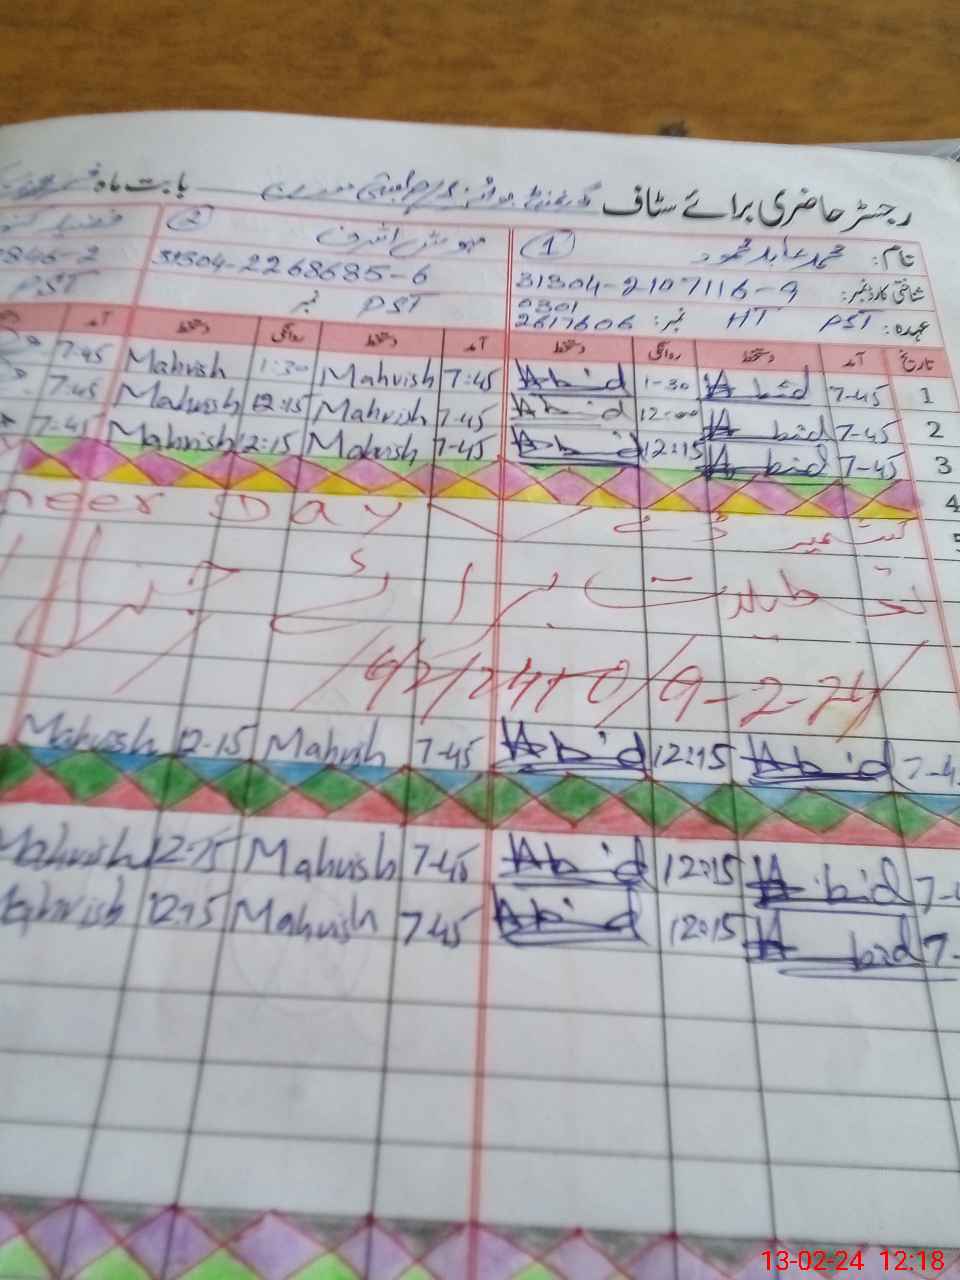 رجسٹر حاضری برائے سٹاف بابت ماہ
نام: محمد عابد محمود ① مہوش اشرف ②
شناختی کارڈ نمبر: 31304-2107116-9 31304-2268685-6 846-2
عہدہ: PST HT نمبر: 0301 2617606 PST نمبر PST
تاریخ آمد دستخط روانگی دستخط آمد دستخط روانگی دستخط آمد
1 7-45 Abid 1-30 Abid 7:45 Mahvish 1:30 Mahvish 7:45
2 7-45 Abid 12:00 Abid 7-45 Mahvish 12:15 Mahvish 7:45
3 7-45 Abid 12:15 Abid 7-45 Mahvish 12:15 Mahvish 7:45
4
5 کشمیر ڈے Day
تعطیلات برائے جنرل
9-2-24
7-4 Abid 12:15 Abid 7-45 Mahvish 12-15 Mahvish
7-4 Abid 12:15 Abid 7-45 Mahvish 12:15 Mahvish
7- Abid 12:15 Abid 7-45 Mahvish 12:15 Mahvish
13-02-24 12:18